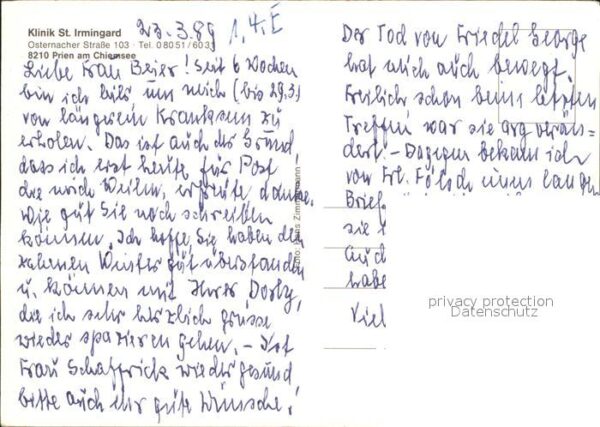 Klinik St. Irmingard
Osternacher Straße 103 · Tel. 0 80 51 / 60 3
8210 Prien am Chiemsee
23.3.89
1.4. E
Liebe Frau Beier! Seit 6 Wochen
bin ich hier, um mich (bis 29.3.)
von längerem Kranksein zu
erholen. Das ist auch der Grund
dass ich erst heute für Post
die noch Weihn. erfreute danke.
Wie gut Sie noch schreiben
können. Ich hoffe Sie haben den
zähen Winter gut überstanden
u. können mit Ihrer Dorly,
die ich sehr herzlich grüsse
wieder spazieren gehen. – Ist
Frau wieder gesund
bitte auch ihr gute Wünsche!
Foto: Hans Zimmermann
Der Tod von Friedel George
hat mich auch bewegt.
Freilich schon beim letzten
Treffen war sie arg verän-
dert. – Dagegen bekam ich
von Frl. einen langen
Brief
sie
Auch
habe
Viel
privacy protection
Datenschutz